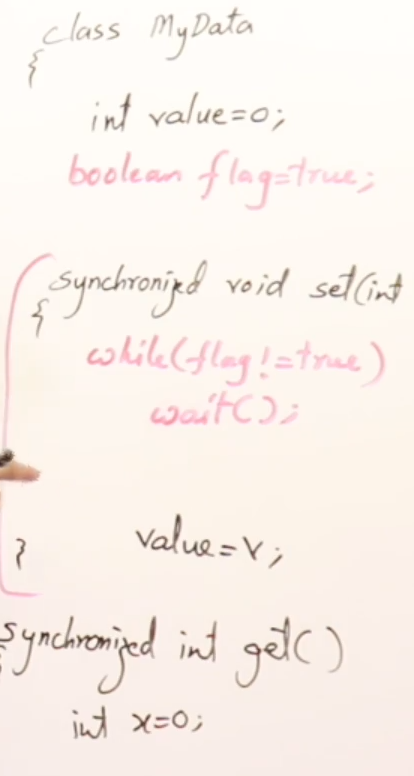 class MyData
{
int value=0;
boolean flag=true;
synchronized void set(int
{
while(flag!=true)
wait();
value=v;
}
synchronized int get()
{
int x=0;